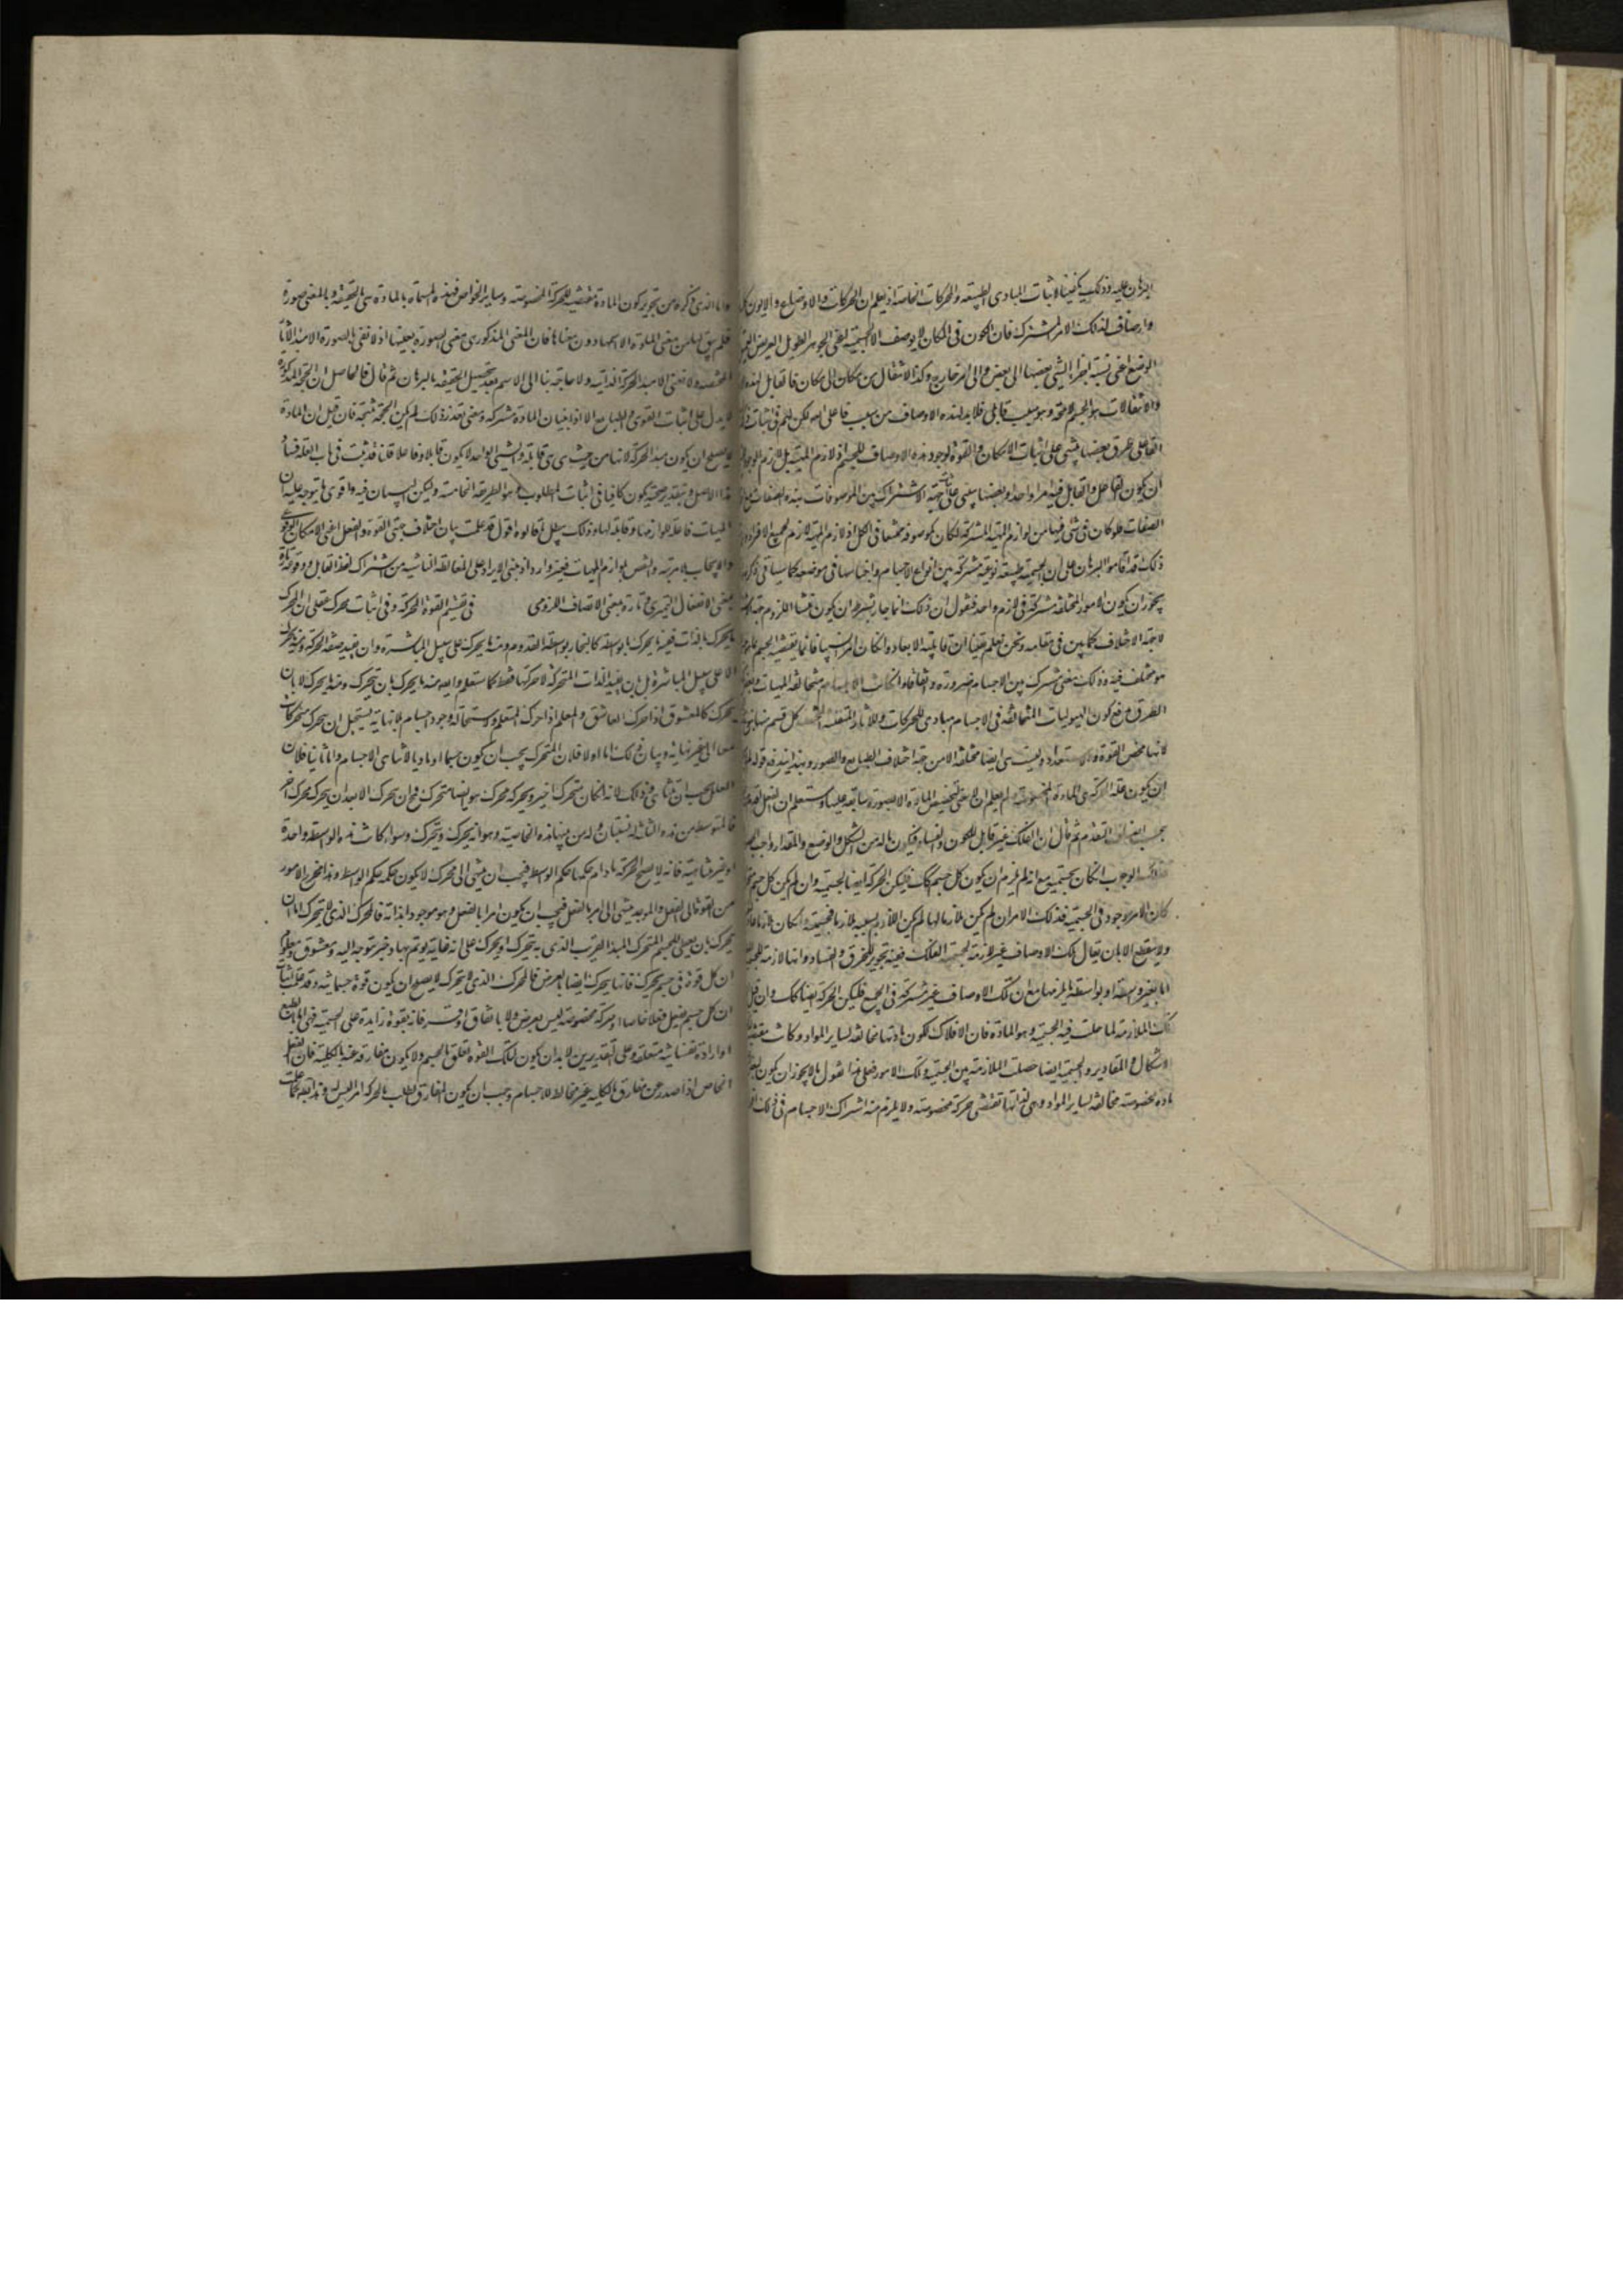 البرهان عليه وذلك يكفينا لاثبات المبادى الطبيعة والحركات الخاصة اذ يعلم ان الحركات والاوضاع والايون كل
واوصاف لذلك الامر المشترك فان الكون فى المكان لا يوصف الا الجسمية اعنى الجوهر الطويل العريض العميق
الوضع اعنى نسبة اجزاء الشى بعضها الى بعض والى امر خارج وكذا الانتقال من مكان الى مكان فالقابل لهذه
والانتقالات هو الجسم لامحة وهو سبب قابلى فلابد لهذه الاوصاف من سبب فاعلى
الفاعلى طرق بعضها يبتنى على اثبات الامكان والقوة لوجود هذه الاوصاف للجسم لازم المهية بل لازم الوجود
ان يكون الفاعل والقابل فيه امرا واحدا وبعضها يبتنى على جهة الاشتراك بين الموصوفات بهذه الصفات
الصفات فلو كان شى فيها من لوازم المهية المشتركة لكان موصوفه مجتمعا فى الكل اذ لازم المهية لازم لجميع الافراد
ذلك قد اقاموا البرهان على ان الجسمية طبيعة نوعية مشتركة بين انواع الاجسام واجناسها فى موضعه كما سياتى ذكره
يجوز ان يكون الامور المختلفة مشتركة فى لازم واحد فنقول ان ذلك انما جاز بشرط ان يكون منشا اللزوم جهة
لا جهة الاختلاف كما بين فى مقامه ونحن نعلم يقينا ان قابلية الابعاد وان كان امرا نسبيا فانما يقتضيه الجسم بما هو
هو مختلف فيه وذلك معنى مشترك بين الاجسام ضرورة واتفاقا وان كانت الاجسام متخالفة المهيات
الطرق مع كون الهيوليات المتخالفة فى الاجسام مبادى للحركات وللاثار كل قسم منها
لانها محض القوة والاستعداد وليست هى ايضا مختلفة الا من جهة اختلاف الطبايع والصور وبهذا يندفع قوله
ان يكون علة الحركة هى المادة المخصوصة الم يعلم ان لا معنى لتخصيص المادة الا بصورة سابقة عليها وستعلم ان الفعل اقدم
بجميع انحاء التقدم ثم قال ان الفلك غير قابل للكون والفساد فيكون ماله من الشكل والوضع والمقدار واجب
فذلك الوجوب ان كان لجسميته مع انه لم يلزم ان يكون كل جسم كذلك فليكن الحركة ايضا لجسميته وان لم يكن كل جسم
كان الامر موجود فى الجسمية فذلك الامر ان لم يكن ملازما لها لم يكن اللازم بسببه لازما لجسميته وان كان ملازما
ولا ينقطع الا بان يقال تلك الاوصاف غير لازمة لجسمية الفلك فيه تجويز للخرق والفساد وانها لازمة للجسمية
اما بغير واسطة او بواسطة ما يلزمها مع ان تلك الاوصاف غير مشتركة فى الجميع فليكن الحركة ايضا كذلك وان قيل
تلك الملازمة لما حلت فيه الجسمية وهو المادة فان الافلاك لكون مادتها مخالفة لساير المواد وكانت مقتضية
لاشكال والمقادير والجسمية ايضا حصلت الملازمة بين الجسمية وتلك الامور فعلى هذا نقول لم لا يجوز ان يكون لبعض
مادة مخصوصة مخالفة لساير المواد وهى لذاتها تقتضى حركة مخصوصة ولا يلزم منه اشتراك الاجسام فى ذلك
واما الذى ذكره من تجويز كون المادة مقتضية للحركة المخصوصة وساير الخواص فهذه المسماة بالمادة هى بالحقيقة وبالمعنى صورة
فلم يبق لها من معنى المادة الا اسمها دون معناها فان المعنى المذكور هى معنى الصورة بعينها اذ لا نعنى بالصورة الا مبدا الآثار
المختصة ولا نعنى الا مبدا الحركة الذاتية ولا حاجة بنا الى الاسم بعد تحصيل الحقيقة بالبرهان ثم قال فالحاصل ان الحجة المذكورة
لا يدل على اثبات القوى والطبايع الا اذا بينا ان المادة مشتركة وعند تعذر ذلك لم يكن الحجة منتجة فان قيل ان المادة
لا يصلح ان يكون مبدا الحركة لانها من حيث هى هى قابلة والشى الواحد لا يكون قابلا وفاعلا قلنا قد ثبت فى باب العلة فساد
هذا الاصل وبتقدير صحته يكون كافيا فى اثبات المطلوب وهو الطريقة الخامسة وليكن البيان فيه واقوى ما يتوجه عليه ان
المهيات فاعلة للوازمها وقابلة لها وذلك يبطل ما قالوه اقول قد علمت بيان اختلاف جهتى القوة والفعل اعنى الامكان الوقوعى
والايجاب بلا مرية والنقض بلوازم المهيات فغير وارد اذ مبنى الايراد على المغالطة الناشية من اشتراك لفظ القابل ووقوعه تارة
بمعنى الانفعال التغيرى وتارة بمعنى الاتصاف اللزومى فى تقسيم القوة المحركة وفى اثبات محرك عقلى ان المحرك
ما يحرك بالذات فمنه ما يحرك بالواسطة كالنجار بواسطة القدوم ومنه ما يحرك على سبيل المباشرة وان يفيد صفة الحركة ومنه ما يحرك
لا على سبيل المباشرة بل بان يفيد الذات المتحركة لا حركتها فقط كما ستعلم وايضا منه ما يحرك بان يتحرك ومنه ما يحرك لا بان
يتحرك كالمعشوق اذا حرك العاشق والمعلم اذا حرك المتعلم واستحالة وجود اجسام بلا نهاية يستحيل ان يتحرك متحركات
معا الى غير نهاية وبيان ذلك اما اولا فلان المتحرك يجب ان يكون جسما او ماديا لا تناهى الاجسام واما ثانيا فلان
العلل يجب ان تتناهى وذلك لانه ان كان متحرك اخير ويحركه محرك هو ايضا متحرك فح ان يحرك الا بعد ان يحركه محرك آخر
فالمتوسط من هذه الثلاثة له نسبتان وله من بينها هذه الخاصية وهو انه يحرك ويتحرك وسواء كانت هذه الواسطة واحدة
او غير متناهية فانه لا يصح الحركة مادام حكمها حكم الواسط فيجب ان ينتهى الى محرك لا يكون حكمه حكم الواسط وهذا مخرج الامور
من القوة الى الفعل والموجد ينتهى الى امر بالفعل فيجب ان يكون امرا بالفعل وهو موجود بذاته فالمحرك الذى لا يتحرك اما ان
يحرك بان يعطى للجسم المتحرك المبدا القريب الذى به يتحرك او يحرك على انه غاية يوتم بها وخير متوجه اليه ومعشوق ومعلوم
ان كل قوة فى جسم يحرك فانها يتحرك ايضا بالعرض فالمحرك الذى لا يتحرك لا يصلح ان يكون قوة جسمانية وقد علمت باثبات
ان كل جسم يفعل فعلا خاصا او حركة مخصوصة ليس بعرض ولا باتفاق او قسر فانه بقوة زايدة على الجسمية فهى اما بالطبع
او ارادة نفسانية متعلقة وعلى التقديرين لابد ان يكون لتلك القوة تعلق بالجسم ولا يكون مفارقة عنه بالكلية فان الفعل
الخاص اذا صدر عن مفارق بالكلية غير مخالط للاجسام وجب ان يكون المفارق يطلب بالحركة امرا ليس له